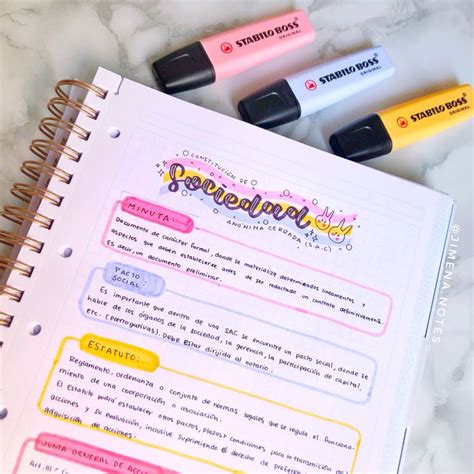 STABILO BOSS
ORIGINAL
STABILO BOSS
ORIGINAL
STABILO BOSS
ORIGINAL
CONSTITUCIÓN DE
Sociedad
ANÓNIMA CERRADA (S.A.C)
MINUTA
Documento de carácter formal, donde se materializa determinados lineamientos y
aspectos que deben establecerse antes de ser redactado un contrato definitivamente.
Es decir, un documento preliminar.
PACTO
SOCIAL
Es importante que dentro de una SAC se encuentre un pacto social, donde se
hable de los órganos de la Sociedad, la gerencia, la participación de capital,
etc. (Prerrogativas). Debe estar dirijida al notario.
ESTATUTO:
Reglamento, ordenanza o conjunto de normas legales que se regula el funciona-
miento de una coorporación o asociación.
El estatuto podrá establecer otros pactos, plazos y condiciones para la transmisión de
acciones y su evaluación, inclusive suprimiendo el derecho de preferencia
Adquisición de acciones.
JUNTA GENERAL DE
Art. 111 =
@JIMENA.NOTES